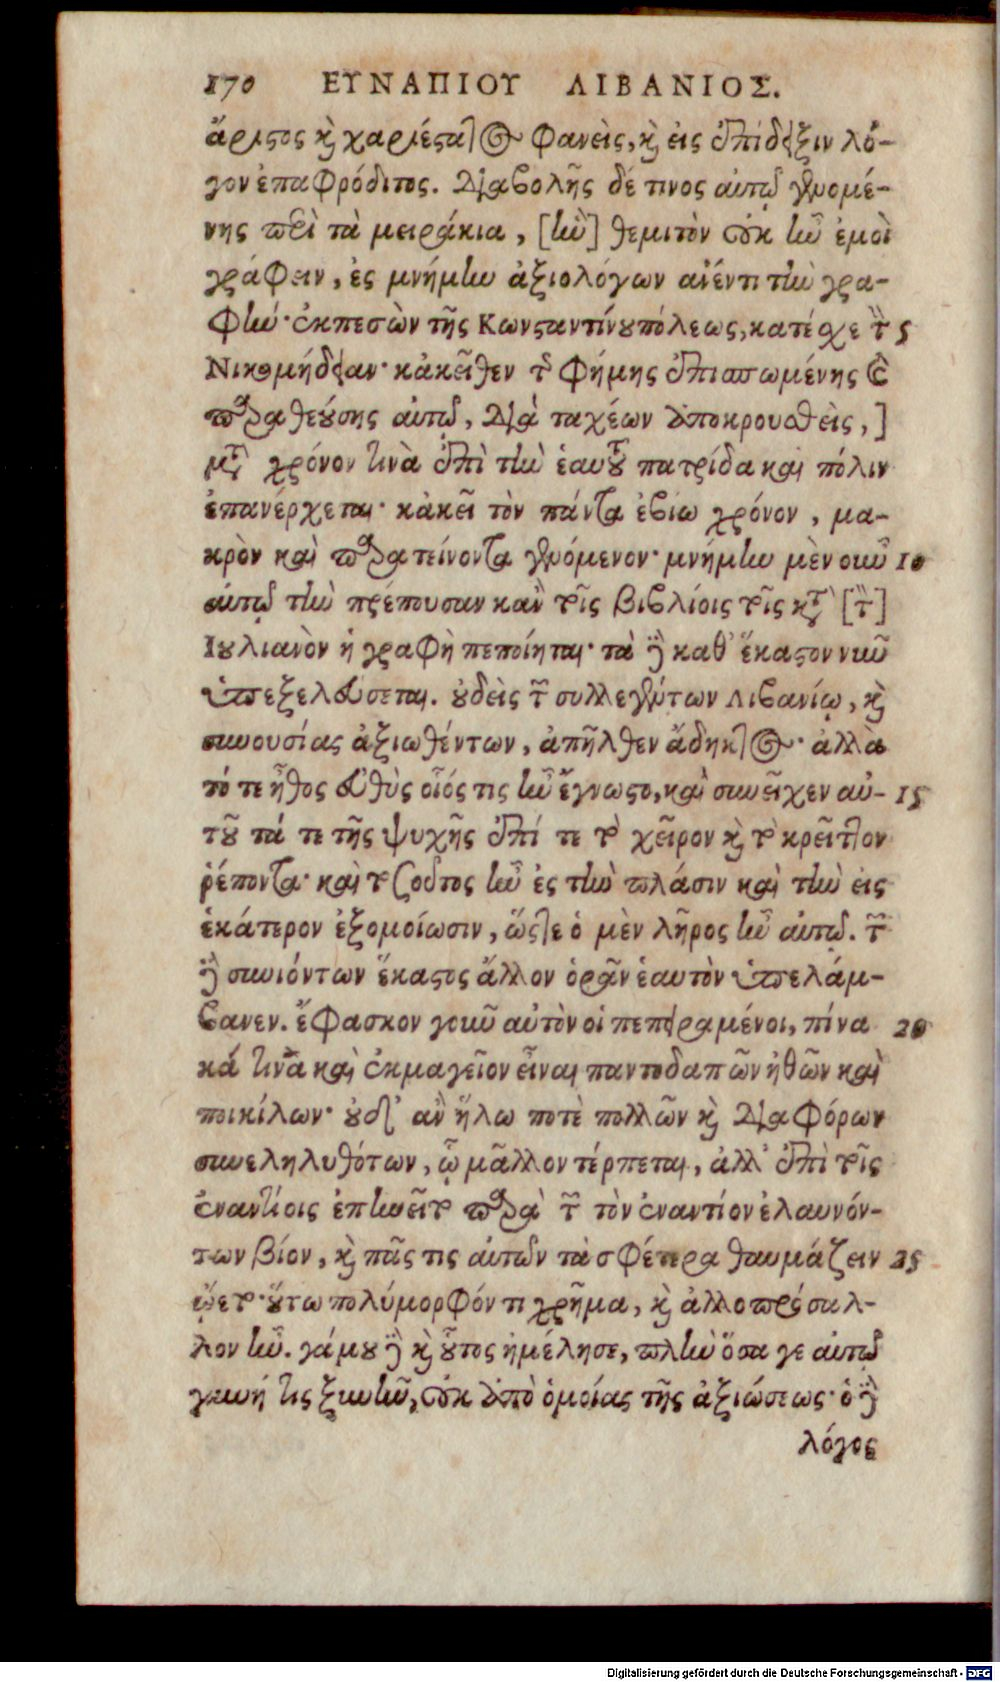 170 ΕΥΝΑΠΙΟΥ ΛΙΒΑΝΙΟΣ.
ἄριστος καὶ χαριέστατος φανεὶς, καὶ εἰς ἐπίδειξιν λό-
γον ἐπαφρόδιτος. Διαβολῆς δέ τινος αὐτῷ γενομέ-
νης περὶ τὰ μειράκια, [ἣν] θεμιτὸν οὐκ ἦν ἐμοὶ
γράφειν, ἐς μνήμην ἀξιολόγων ἀνέντι τὴν γρα-
φήν· ἐκπεσὼν τῆς Κωνσταντίνουπόλεως, κατέσχε τὴν 5
Νικομήδειαν· κἀκεῖθεν τῆς φήμης ἐπισπωμένης καὶ
παραθεούσης αὐτῷ, διὰ ταχέων ἀποκρουσθεὶς, ]
μετὰ χρόνον τινὰ ἐπὶ τὴν ἑαυτοῦ πατρίδα καὶ πόλιν
ἐπανέρχεται· κἀκεῖ τὸν πάντα ἐβίω χρόνον, μα-
κρὸν καὶ παρατείνοντα γενόμενον· μνήμην μὲν οὖν 10
αὐτῷ τὴν πρέπουσαν κἂν τοῖς βιβλίοις τοῖς κατὰ [τὸν]
Ιουλιανὸν ἡ γραφὴ πεποίηται· τὰ δὲ καθ᾽ ἕκαστον νῦν
ὑπεξελεύσεται. οὐδεὶς τῶν συλλεγέντων Λιβανίῳ, καὶ
συνουσίας ἀξιωθέντων, ἀπῆλθεν ἄδηκτος· ἀλλὰ
τό τε ἦθος εὐθὺς οἷός τις ἦν ἔγνωστο, καὶ συνεῖχεν αὐ- 15
τοῦ τά τε τῆς ψυχῆς ἐπί τε τὸ χεῖρον καὶ τὸ κρεῖττον
ῥέποντα· καὶ τοσοῦτος ἦν ἐς τὴν πλάσιν καὶ τὴν εἰς
ἑκάτερον ἐξομοίωσιν, ὥστε ὁ μὲν λῆρος ἦν αὐτῷ. τῶν
δὲ συνιόντων ἕκαστος ἄλλον ὁρᾶν ἑαυτὸν ὑπελάμ-
βανεν. ἔφασκον γοῦν αὐτὸν οἱ πεπειραμένοι, πίνα 20
κά τινα καὶ ἐκμαγεῖον εἶναι παντοδαπῶν ἠθῶν καὶ
ποικίλων· οὐδ᾽ ἂν ἥλω ποτὲ πολλῶν καὶ διαφόρων
συνεληλυθότων, ᾧ μᾶλλον τέρπεται, ἀλλ᾽ ἐπὶ τοῖς
ἐναντίοις ἐπῃνεῖτο παρὰ τῶν τὸν ἐναντίον ἐλαυνόν-
των βίον, καὶ πᾶς τις αὐτὸν τὰ σφέτερα θαυμάζειν 25
ᾤετο· οὕτω πολύμορφόν τι χρῆμα, καὶ ἀλλοπρόσαλ-
λον ἦν. γάμου δὲ καὶ οὗτος ἠμέλησε, πλὴν ὅσα γε αὐτῷ
γυνή τις ξυνῆν, οὐκ ἀπὸ ὁμοίας τῆς ἀξιώσεως· ὁ δὲ
λόγος
Digitalisierung gefördert durch die Deutsche Forschungsgemeinschaft - DFG